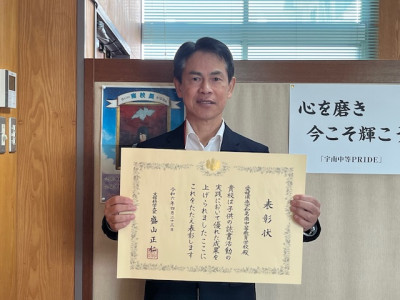 表彰状
愛媛県立宇和島南中等教育学校殿
貴校は子供の読書活動の
実践において優れた成果を
上げられました ここに
これをたたえ表彰します
令和六年四月二十三日
文部科学大臣 盛山正仁
心を磨き
今こそ輝こう
「宇南中等PRIDE」